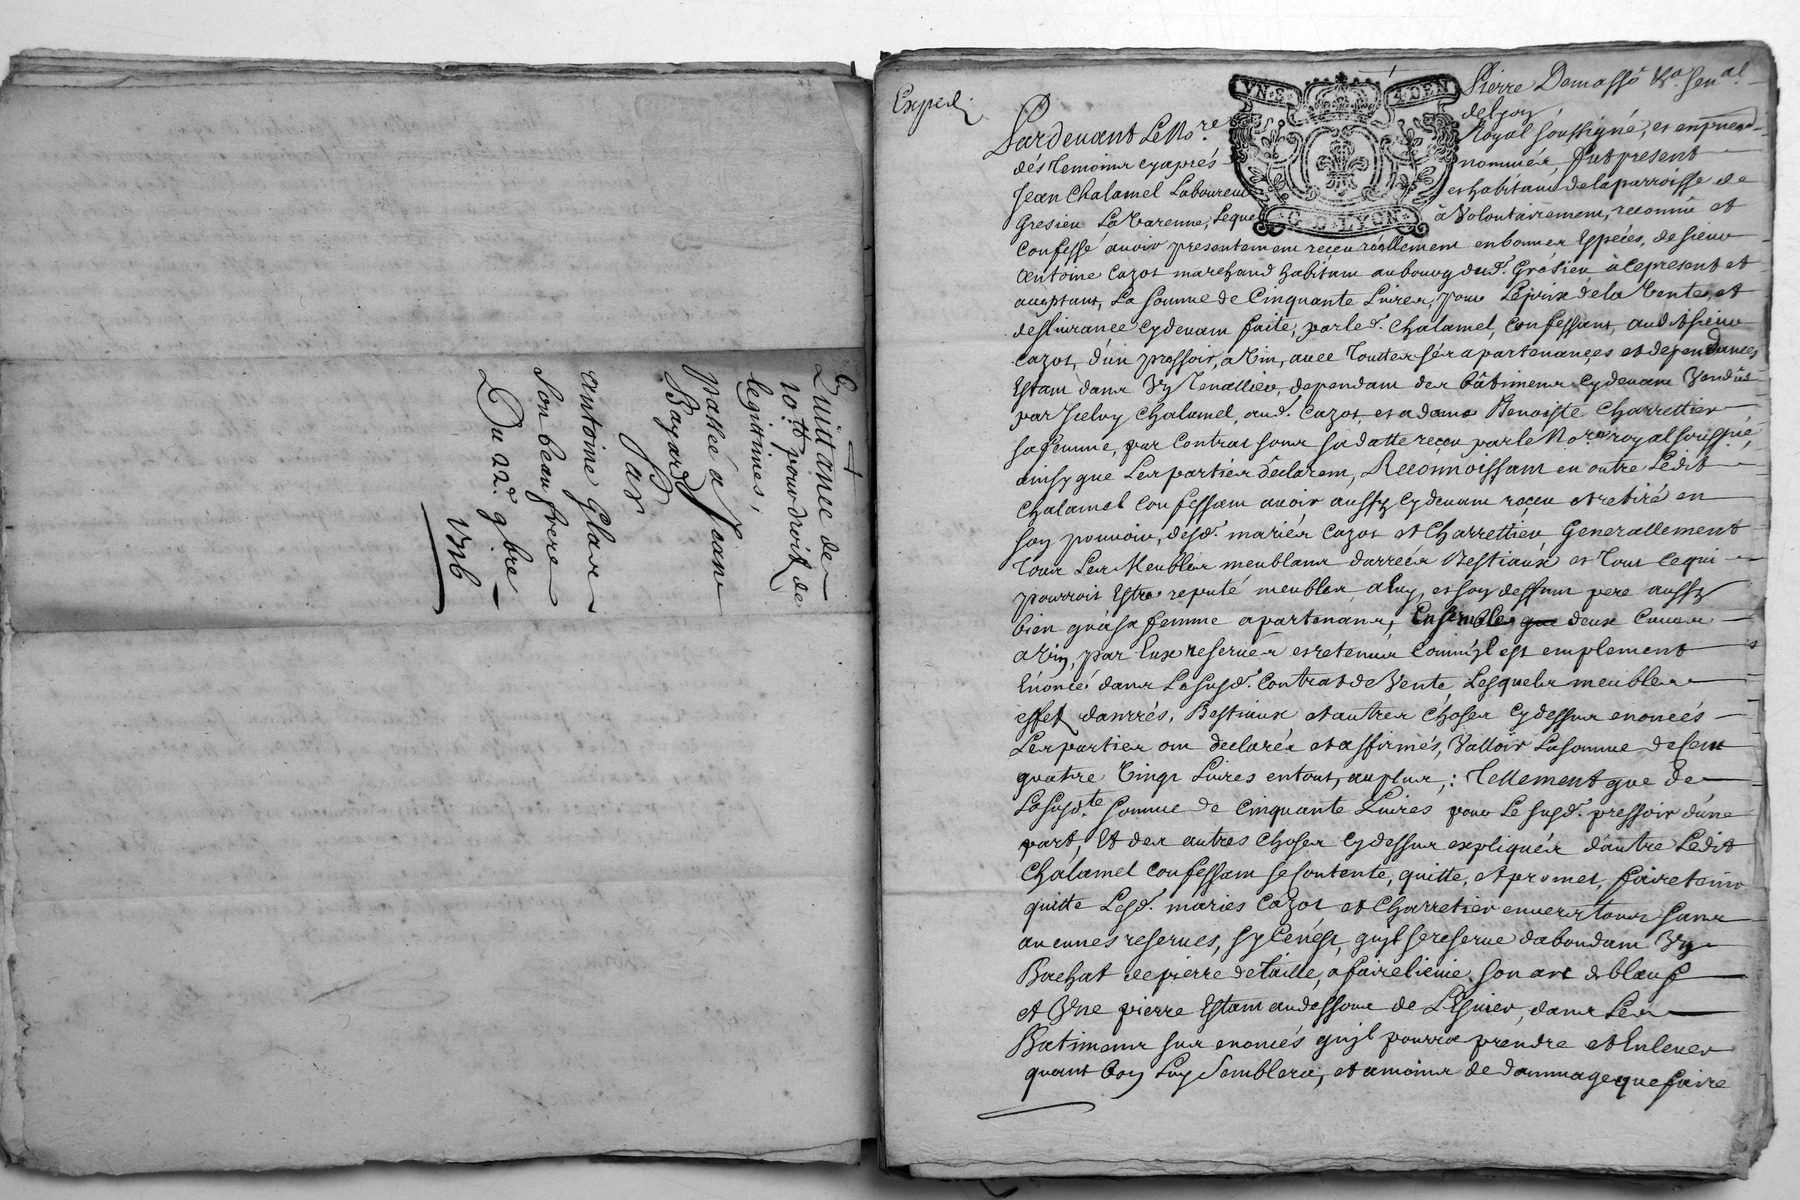 Quittance de
10.tt pour droit de
legitimes,
passée a Jean
Bayard
Par
antoine Glas
Son beau frere
Du 22.e 9bre
1716
Exped.
VN S. 4 DEN
G. D. LYON
Pierre Demasso
Pardevant Le No.re Royal Soussigné, et en presence
des Temoins cyaprés nommés, fut present
Jean Chalamel Laboureur et habitant de la parroisse de
Gresieu La Varenne, Lequel à Volontairement, reconnu et
Confessé avoir presentement reçeu réellement en bonnes Espéces, de sieur
Antoine Cazot marchand habitant au bourg dud. Grésieu à ce present et
aceptant, La Somme de Cinquante Livres, pour Le prix de la Vente, et
deslivrance cydevant faite, par led. Chalamel, Confessant, audit sieur
Cazot, d'un pressoir, a Vin, avec Touttes sés apartenances et dependances
Estant dans Vn Tenallier, dependant des bâtiments cydevant Vendûs
par Iceluy Chalamel, aud. Cazot, et a dame Benoiste Charrettier
sa femme, par Contrat sous sa datte reçeu par le No.re royal soussigné,
ainsy que Les parties déclarent, Reconnoissant en outre Ledit
Chalamel Confessant avoir aussy cydevant reçeu et retiré en
son pouvoir, desd. mariés Cazot et Charrettier Generallement
Tous Les Meubles meublans danrées Bestiaux et Tout ce qui
pourroit Estre reputé meubles, a luy, et son deffunt pere aussy
bien qu'a sa femme apartenans, Ensembles que deux Cuves
a Vin, par Eux reservés et retenus Comm'jl est emplement
Enoncé dans La susd. Contrat de Vente, Lesquels meubles
effet danrés, Bestiaux et autres Choses cydessus enoncés
Les parties ont declarés et affirmés, Valloir La somme de Cent
quatre Vingt Livres en tout, au plus,: Tellement que de
La susd.te Somme de Cinquante Livres pour Le susd. pressoir d'une
part, Et des autres Choses cydessus expliqués d'autre Ledit
Chalamel Confessant se contente, quitte, et promet, faire tenir
quitte Lesd. mariés Cazot et Charretier envers tous sans
aucunes reserves, sy Ce n'est, qu'jl se reserve dabondant Vn
Bachat de pierre de taille, a faire
et Vne pierre Estant au dessous de L'Esvier, dans Les
Batiments sus enoncés qu'jl pourra prendre et Enlever
quant bon Luy Semblera, et a moins de dommage que faire